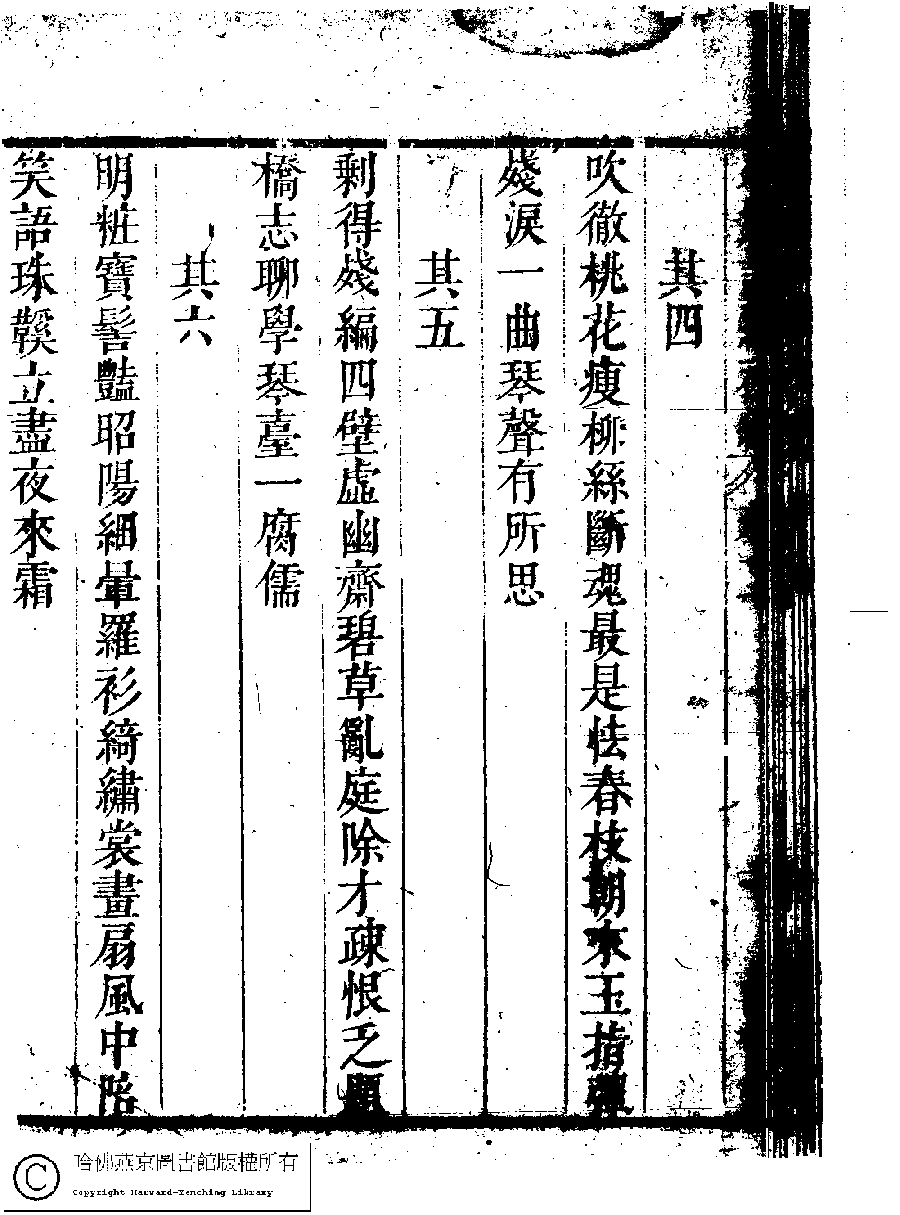 其四
吹徹桃花瘦柳絲斷魂最是怯春枝朝來玉指彈
殘淚一曲琴聲有所思
其五
剩得殘編四壁虛幽齋碧草亂庭除才疎恨乏題
橋志聊學琴臺一腐儒
其六
明粧寶髻豔昭陽細暈羅衫綺繡裳畫扇風中陪
笑語珠鞵立盡夜來霜
哈佛燕京圖書館版權所有
Copyright Harvard-Yenching Library